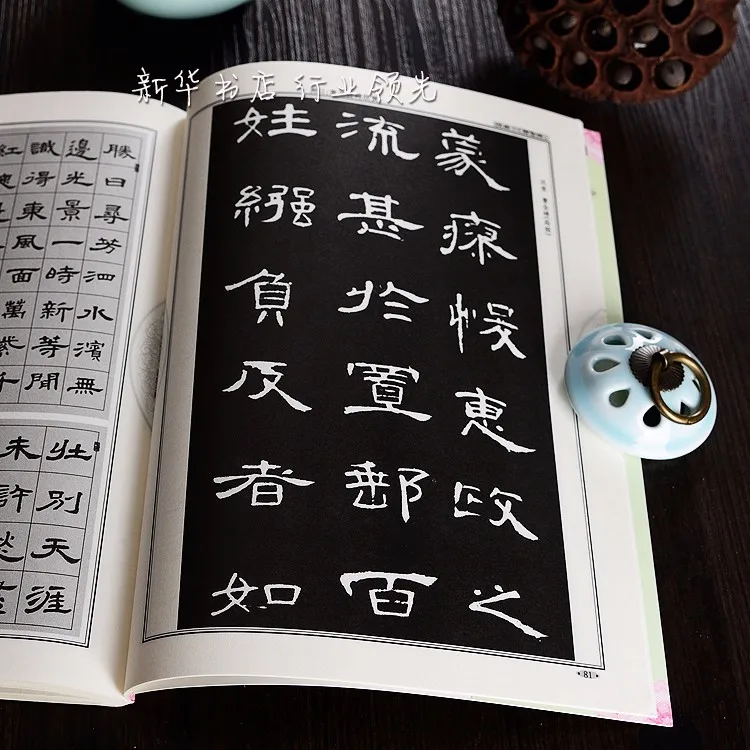 新华书店 行业领先
蒙瘳悛惠政之
流甚於置郵百
姓繦負反者如
汉隶 曹全碑(局部)
81
勝日尋芳泗水濱無
邊光景一時新等閒
識得東風面萬紫千
紅
壯別天涯
未許愁